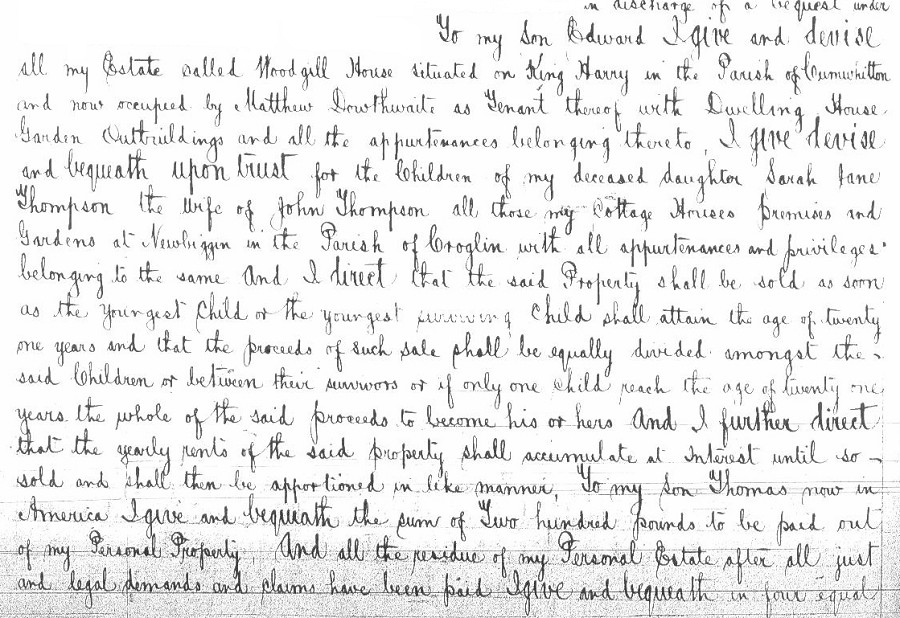 in discharge of a bequest under
To my son Edward I give and devise
all my Estate called Woodgill House situated on King Harry in the Parish of Cumwhitton
and now occupied by Matthew Dowthwaite as Tenant thereof with Dwelling House
Garden Outbuildings and all the appurtenances belonging thereto, I give devise
and bequeath upon trust for the Children of my deceased daughter Sarah Jane
Thompson the Wife of John Thompson all those my Cottage Houses premises and
Gardens at Newbiggin in the Parish of Croglin with all appurtenances and privileges
belonging to the same And I direct that the said Property shall be sold as soon
as the youngest Child or the youngest surviving Child shall attain the age of twenty
one years and that the proceeds of such sale shall be equally divided amongst the
said Children or between their survivors or if only one child reach the age of twenty one
years the whole of the said proceeds to become his or hers And I further direct
that the yearly rents of the said property shall accumulate at Interest until so
sold and shall then be apportioned in like manner, To my son Thomas now in
America I give and bequeath the sum of Two hundred pounds to be paid out
of my Personal Property And all the residue of my Personal Estate after all just
and legal demands and claims have been paid I give and bequeath in four equal